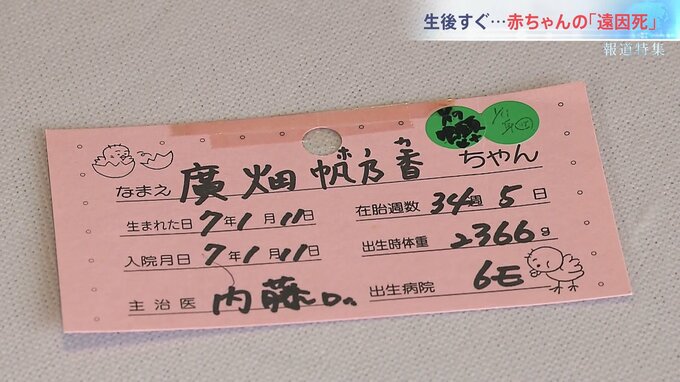 生後すぐ…赤ちゃんの「遠因死」
報道特集
なまえ 廣畑帆乃香ちゃん
ホノカ
生まれた日 7年1月11日 在胎週数 34週5日
入院月日 7年1月11日 出生時体重 2366g
主治医 内藤Dr. 出生病院 6E